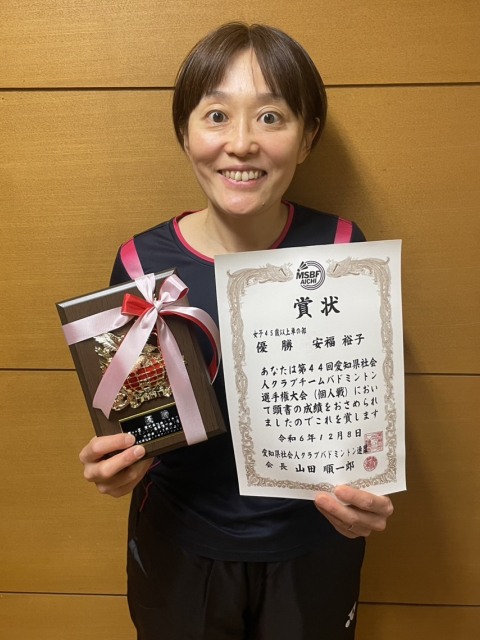 MSBF
AICHI
賞状
女子45歳以上単の部
優勝 安福 裕子
あなたは第44回愛知県社会
人クラブチームバドミントン
選手権大会(個人戦)におい
て頭書の成績をおさめられ
ましたのでこれを賞します
令和6年12月8日
愛知県社会人クラブバドミントン連盟
会長 山田 順一郎
優勝